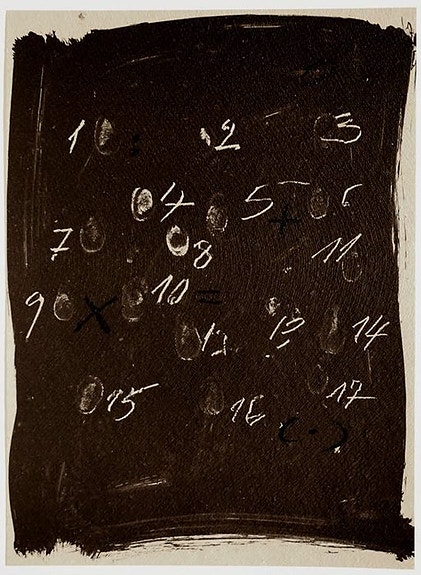 1 : 2 3
4 5 + 6
7 8 11
9 × 10 =
12 13 14
15 16 17
(-)